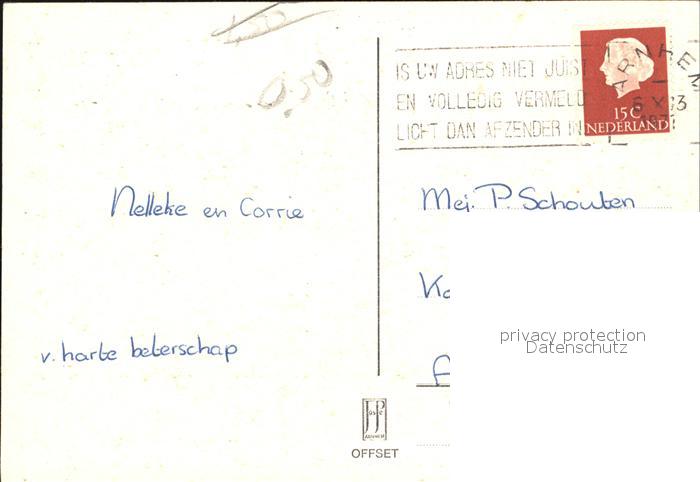 1,50
0.50
IS UW ADRES NIET JUIST
EN VOLLEDIG VERMELD
LICHT DAN AFZENDER IN
ARNHEM
15C
NEDERLAND
Nelleke en Corrie
v. harte beterschap
Mej. P. Schouten
privacy protection
Datenschutz
OFFSET